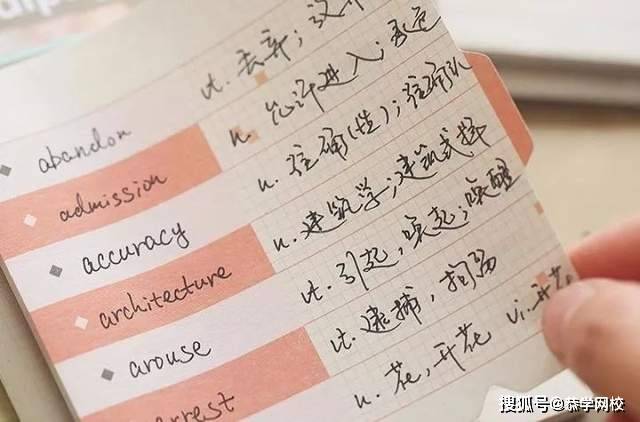 abandon vt. 丢弃;
admission n. 允许进入;
accuracy n. 准确(性); 准确
architecture n. 建筑学; 建筑式样
arouse vt. 引起, 唤起; 唤醒
arrest vt. 逮捕, 拘留
n. 花, 开花 vi. 开花
搜狐号@恭学网校